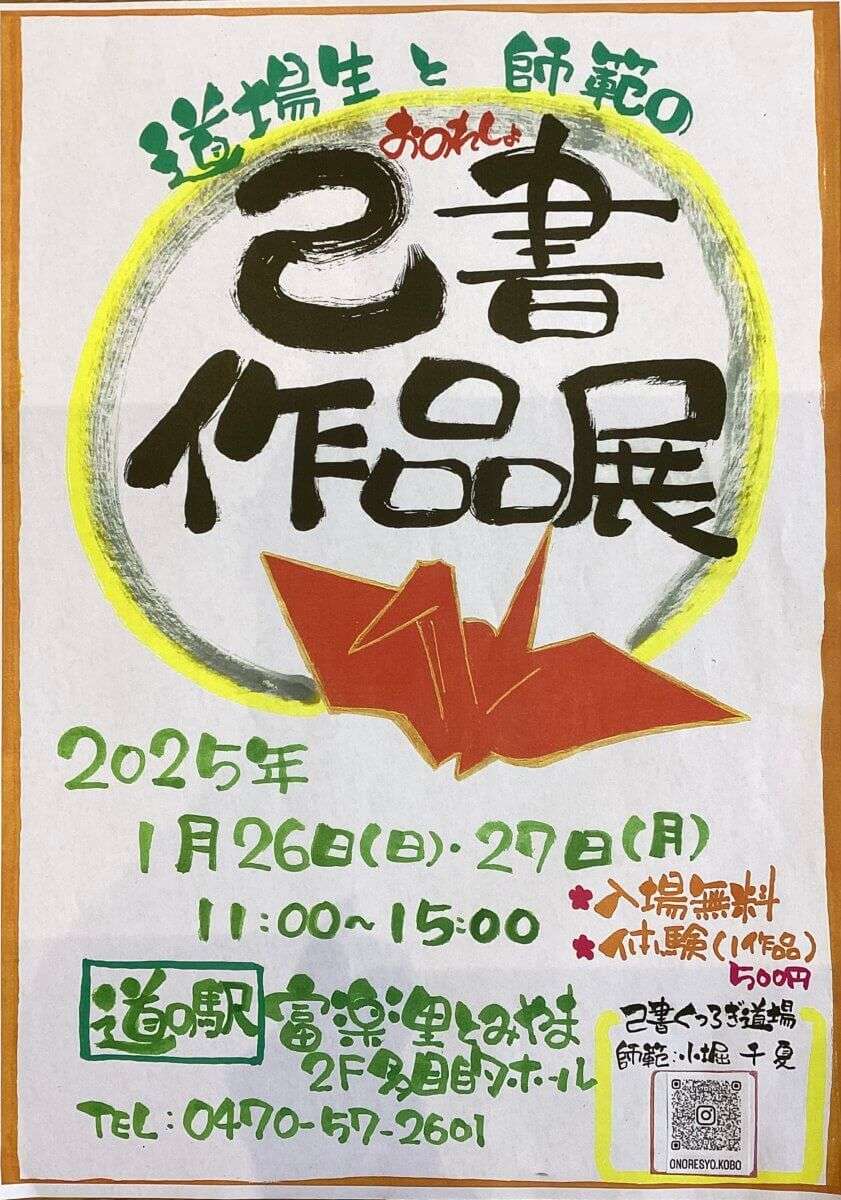 道場生と師範の
おのれしょ
己書
作品展
2025年
1月26日(日)・27日(月)
11:00~15:00
*入場無料
*体験(1作品)
500円
道の駅 富楽里とみやま
2F多目的ホール
TEL:0470-57-2601
己書くつろぎ道場
師範:小堀千夏
ONORESYO.KOBO